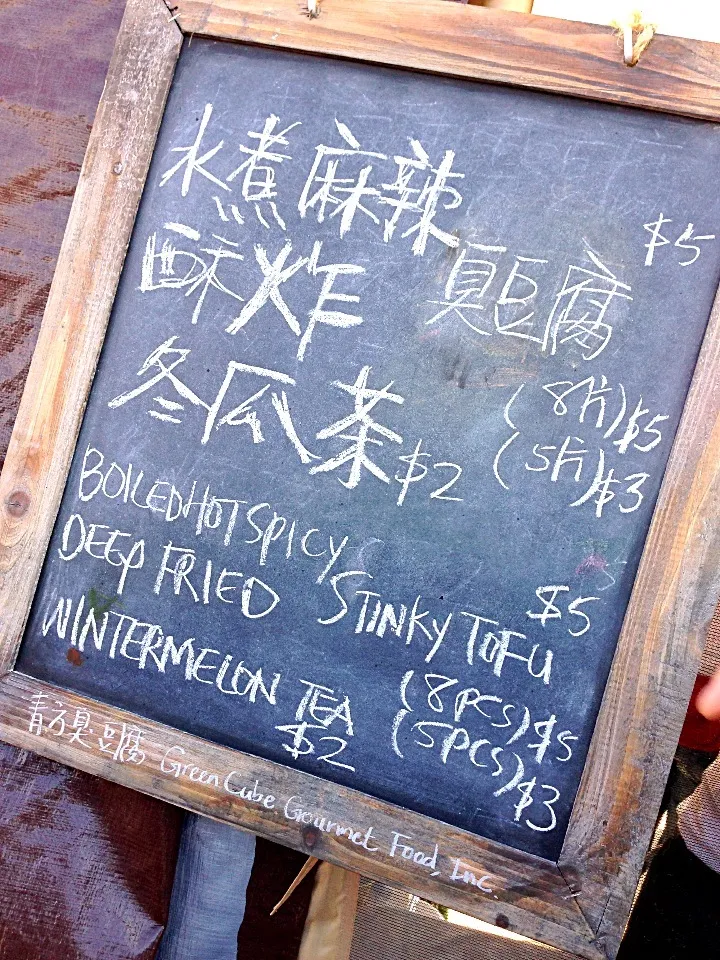 水煮麻辣 $5
酥炸 臭豆腐
(8片)$5
(5片)$3
冬瓜茶 $2
BOILED HOT SPICY $5
DEEP FRIED STINKY TOFU
(8PCS)$5
(5PCS)$3
WINTERMELON TEA
$2
青方臭豆腐 Green Cube Gourmet Food, Inc.